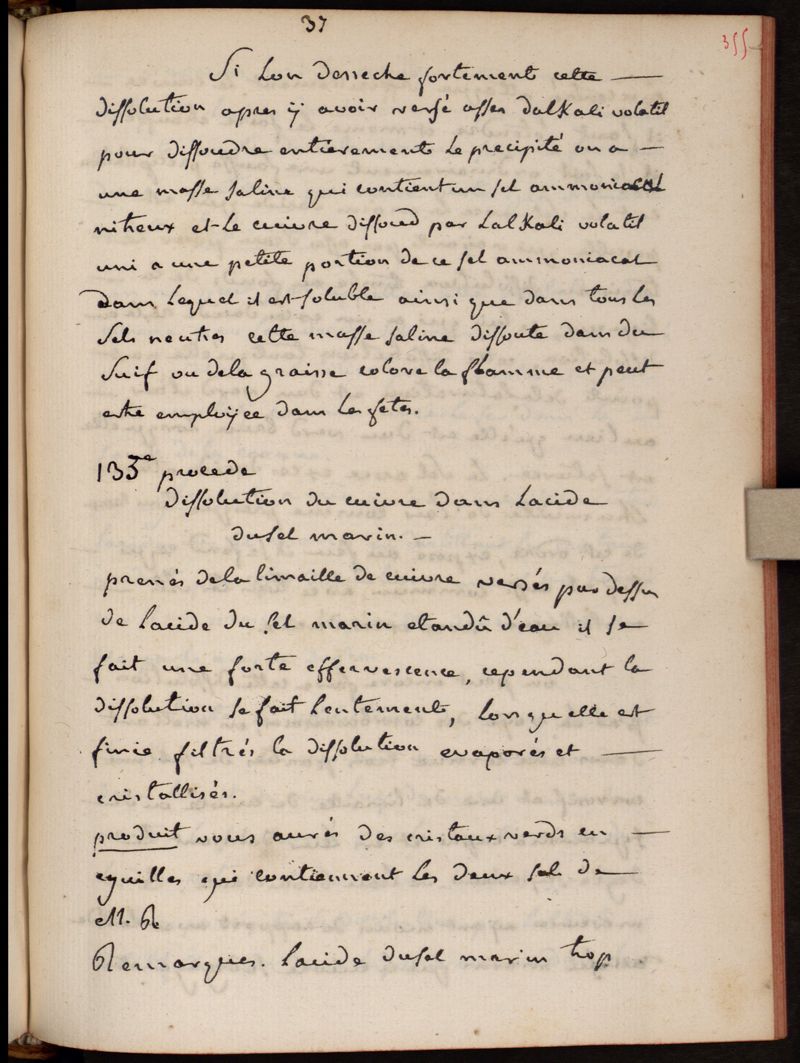 37
355
Si Lon desseche fortement cette —
dissolution apres ÿ avoir versé assés dalKali volatil
pour dissoudre entierement Le precipité on a —
une masse saline qui contient un sel ammoniacal
nitreux et Le cuivre dissoud par LalKali volatil
uni a une petite portion de ce sel ammoniacal
dans Lequel il est soluble ainsi que dans tous Les
Sels neutres cette masse saline dissoute dans du
Suif ou dela graisse colore la flamme et peut
etre emploÿée dans Les fetes.
133me procede
dissolution du cuivre dans Lacide
du sel marin. —
prenés dela limaille de cuivre versés par dessus
de Lacide du sel marin etandû d'eau il se
fait une forte effervescence, cependant la
dissolution se fait Lentement, Lorsquelle est
finie filtrés la dissolution evaporés et —
cristallisés.
produit vous aurés des cristaux verds en —
eguilles qui contiennent Les deux sels de
M. R
Remarques. Lacide du sel marin trop